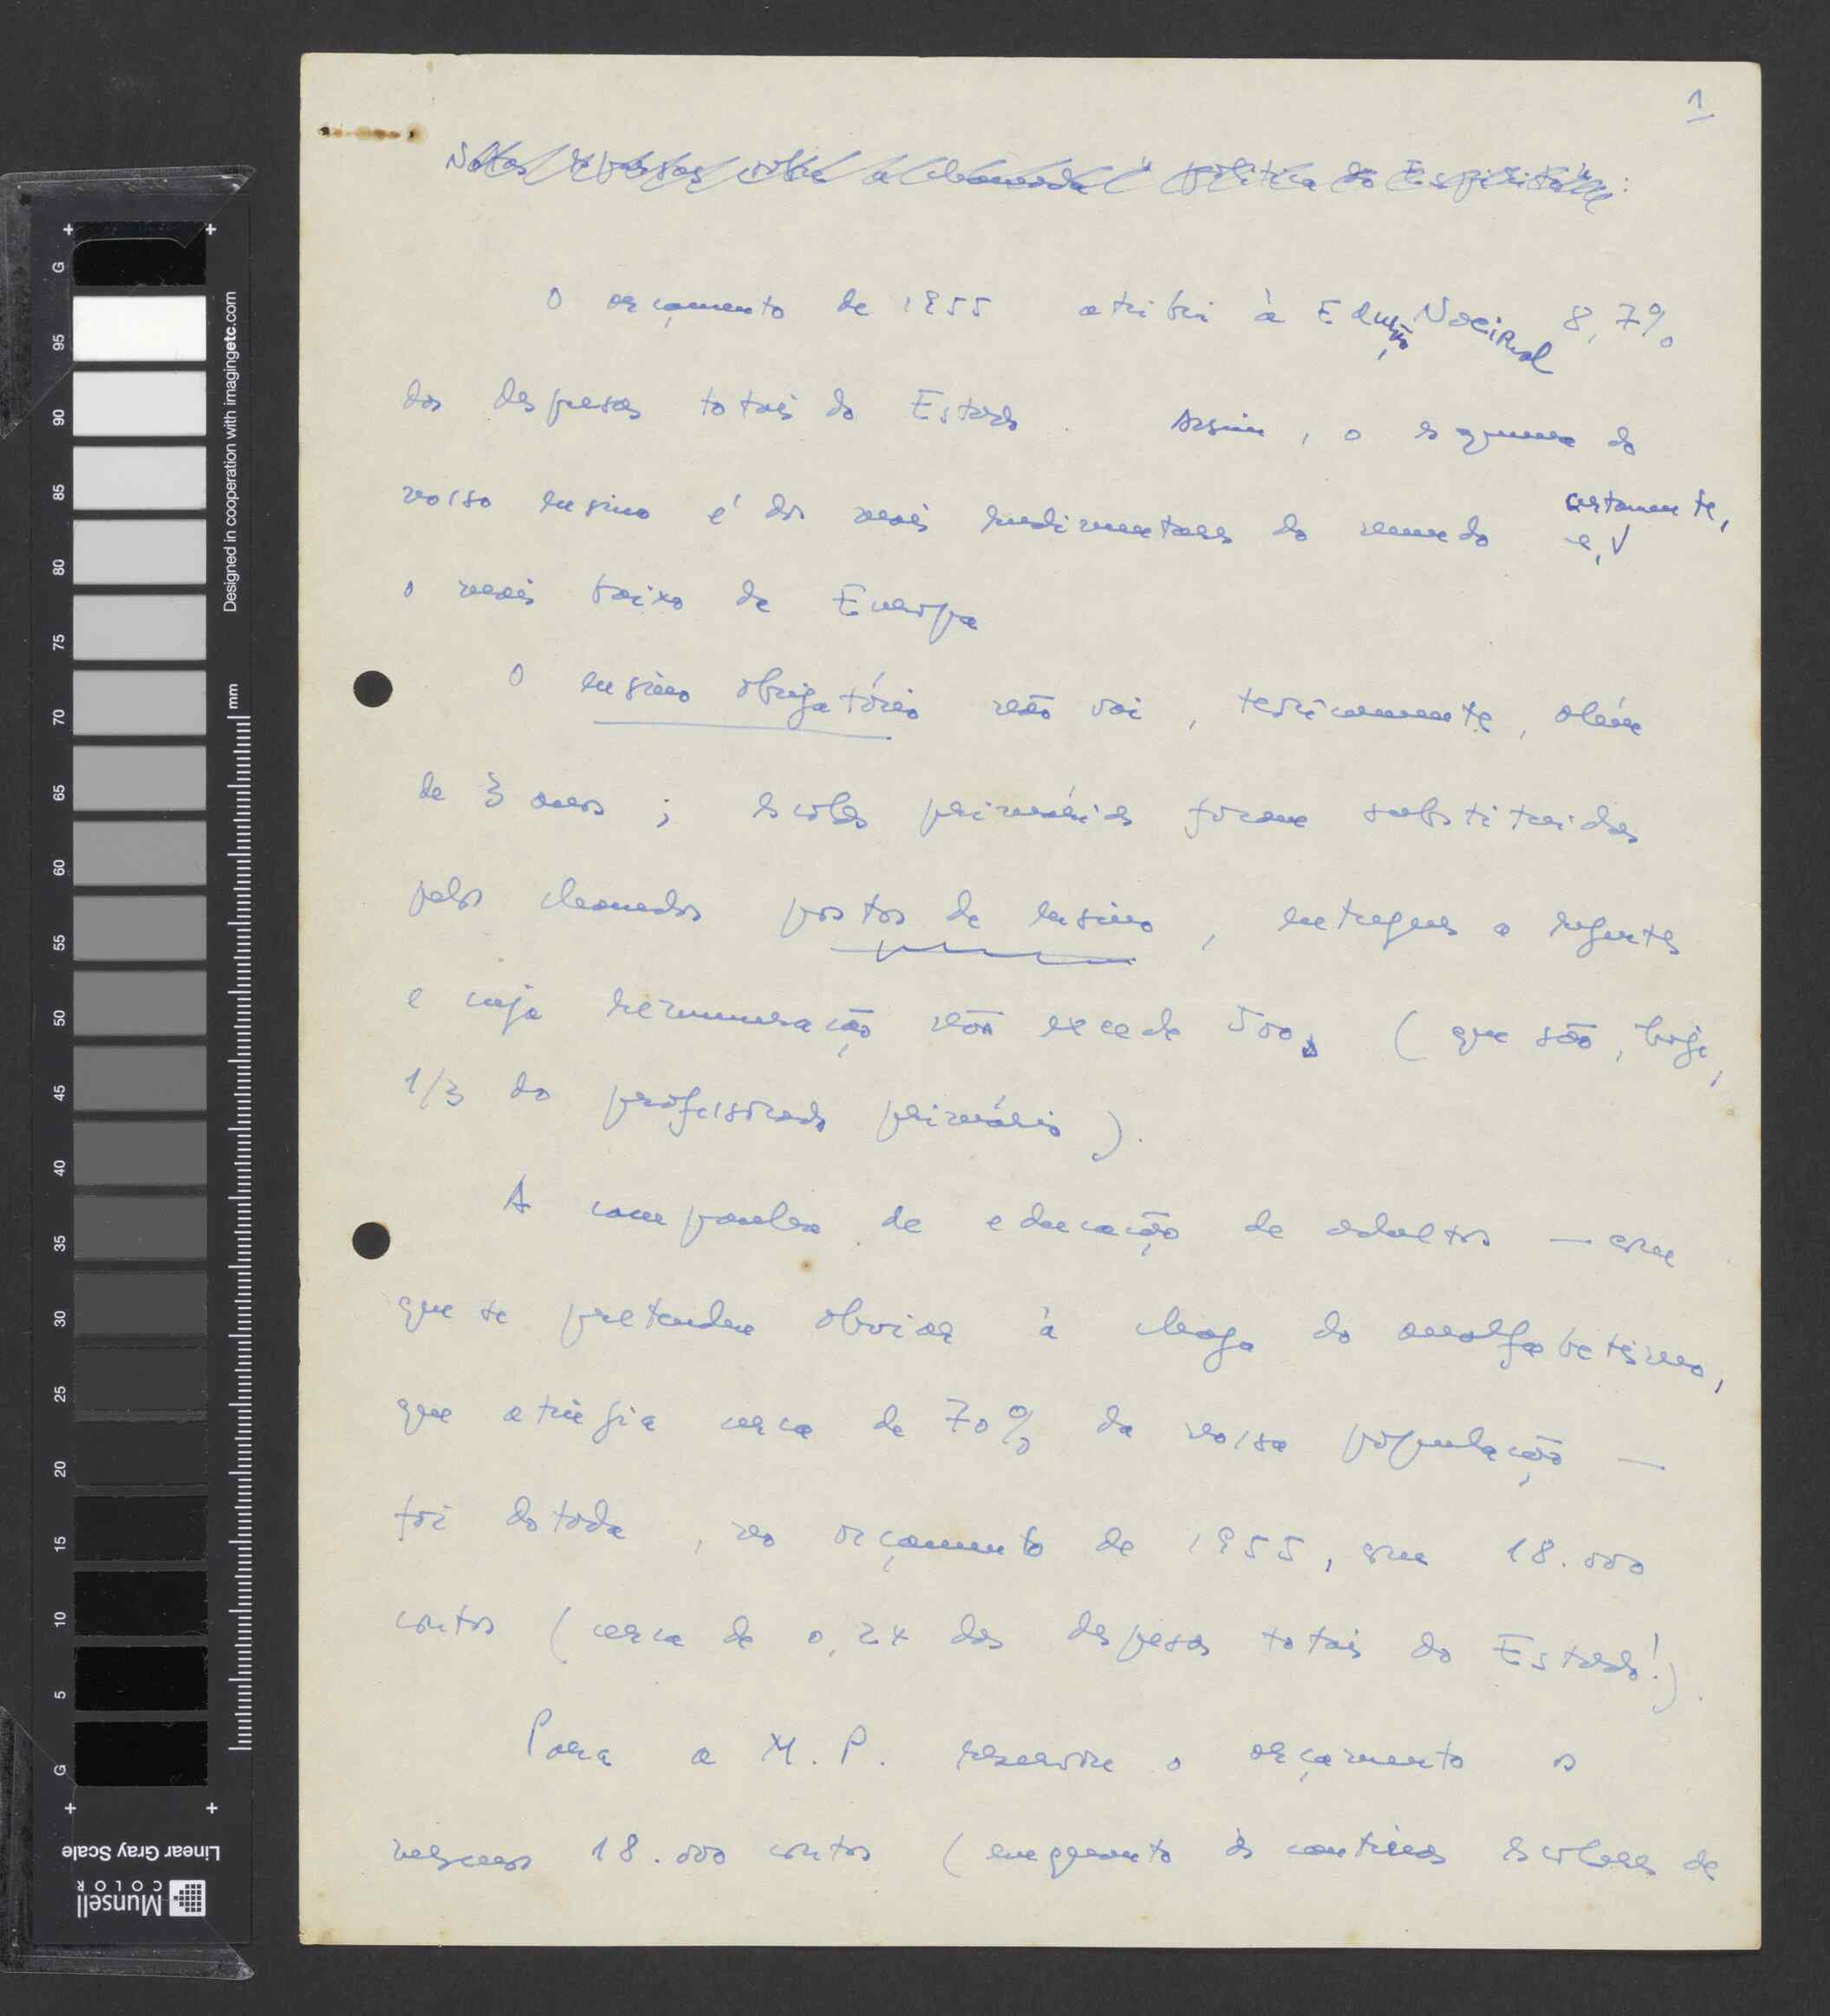 1
Notas dispersas sobre a chamada "política do Espírito":
O orçamento de 1955 atribui à Educação Nacional 8,7%
das despesas totais do Estado. Assim, o esquema do
nosso ensino é dos mais rudimentares do mundo e, certamente,
o mais baixo da Europa
O ensino obrigatório não vai, teòricamente, além
de 3 anos; escolas primárias foram substituidas
pelos chamados postos de ensino, entregues a regentes
e cuja remuneração não excede 500$ (que são, hoje,
1/3 do professorado primário).
A campanha de educação de adultos — com
que se pretendeu obviar à chaga do analfabetismo,
que atingia cerca de 70% da nossa população —
foi dotada, no orçamento de 1955, com 18.000
contos (cerca de 0,24 das despesas totais do Estado!).
Para a M. P. reservou o orçamento os
mesmos 18.000 contos (enquanto às cantinas escolares de
G
95
90
85
80
75
70
65
60
55
50
45
40
35
30
25
20
15
10
5
G
Designed in cooperation with imagingetc.com
mm
Linear Gray Scale
Munsell
COLOR